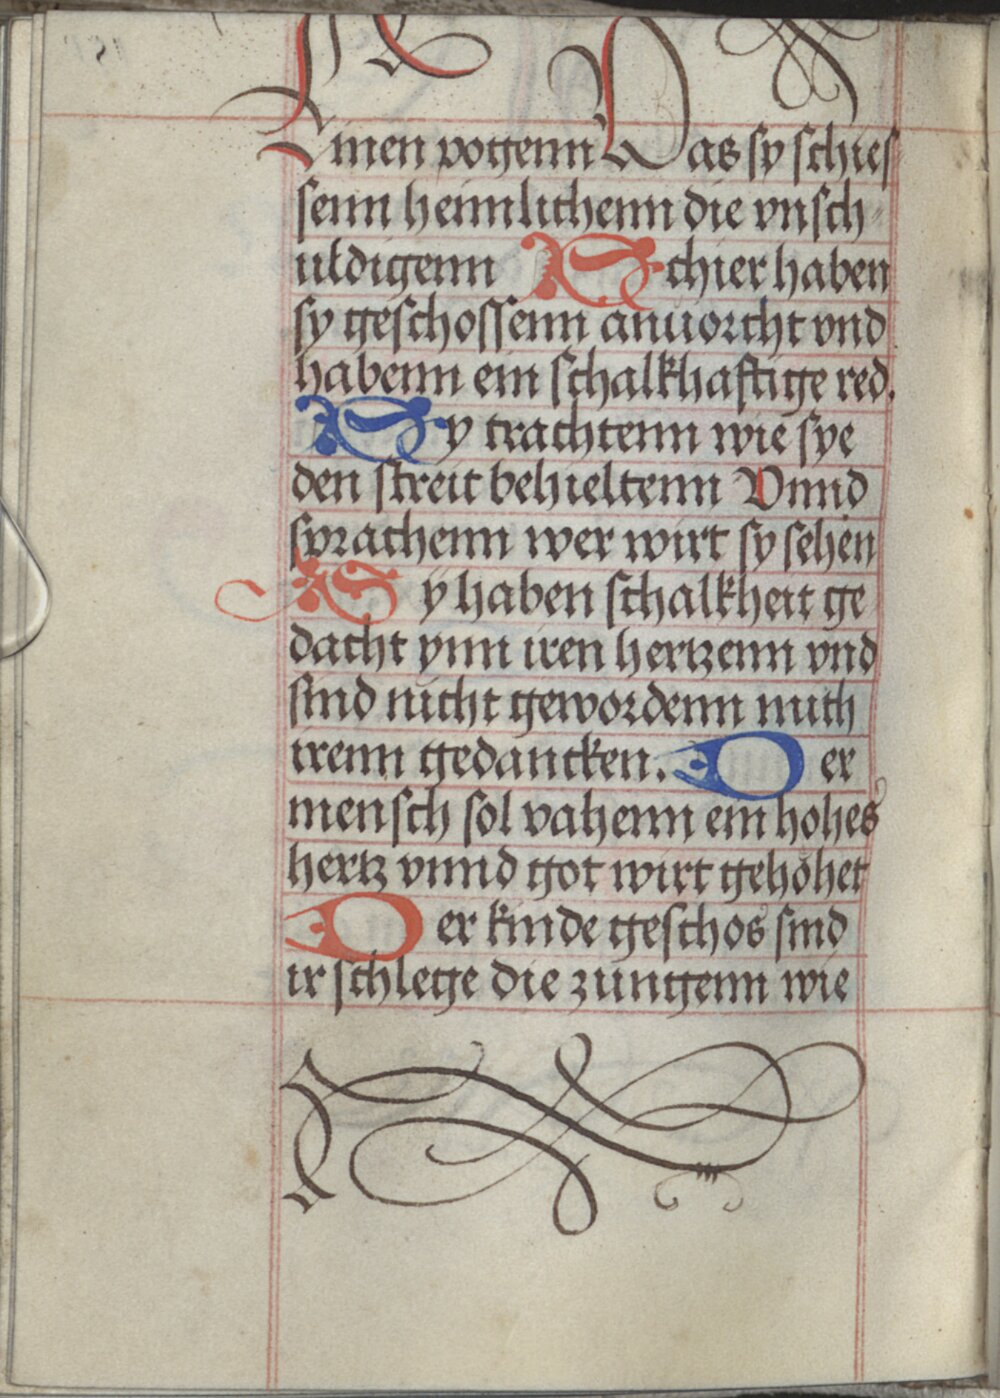 Einen pogenn Das sy schies
senn heimlichenn die vnsch
uldigenn Schier haben
sy geschossenn anuorcht vnd
habenn ein schalkhaftige red.
Sy trachtenn wie sye
den streit behieltenn Vnnd
sprachenn wer wirt sy sehen
Sy haben schalkheit ge
dacht ynn iren hertzenn vnd
sind nicht gewordenn mith
irenn gedancken. Der
mensch sol vahenn ein hohes
hertz vnnd got wirt gehöhet
Der kinde geschos sind
ir schlege die zungenn wie